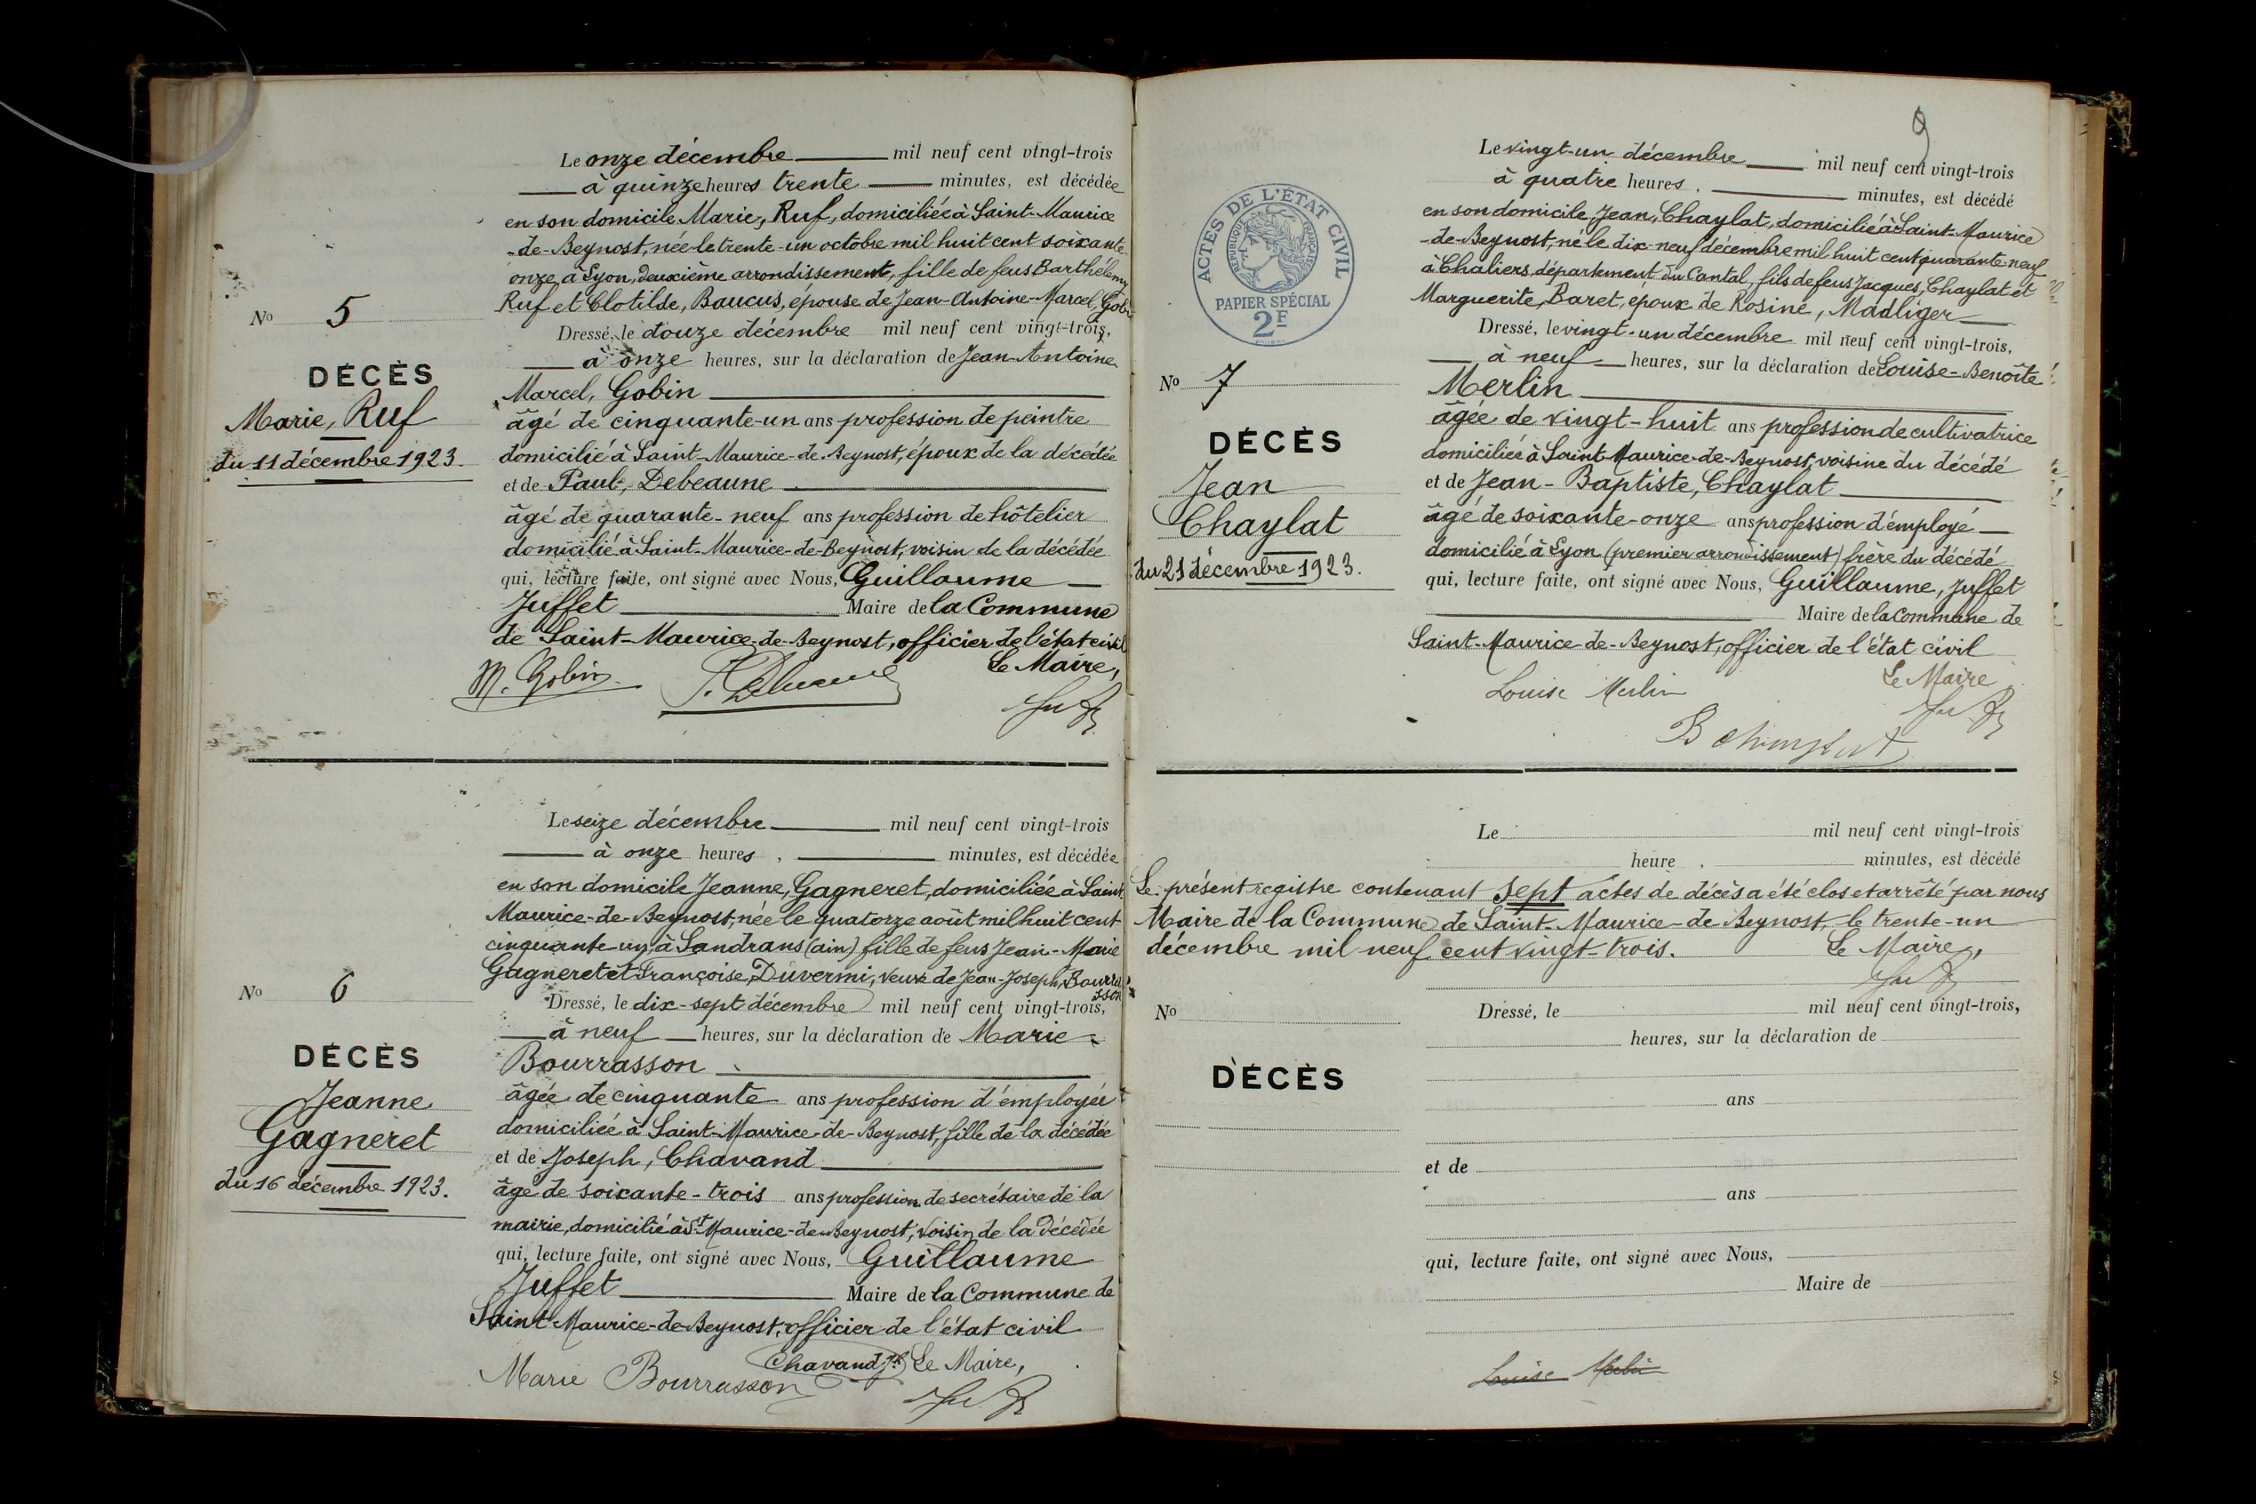 Le onze décembre mil neuf cent vingt-trois
à quinze heures trente minutes, est décédée
en son domicile Marie, Ruf, domiciliée à Saint-Maurice
-de-Beynost, née le trente-un octobre mil huit cent soixante-
onze à Lyon, deuxième arrondissement, fille de feus Barthélemy
Ruf et Clotilde, Baucus, épouse de Jean-Antoine-Marcel, Gobin
No 5
Dressé, le douze décembre mil neuf cent vingt-trois,
à onze heures, sur la déclaration de Jean-Antoine
DÉCÈS
Marcel, Gobin
Marie, Ruf
âgé de cinquante-un ans profession de peintre
du 11 décembre 1923.
domicilié à Saint-Maurice-de-Beynost, époux de la décédée
et de Paul, Debeaune
âgé de quarante-neuf ans profession de hôtelier
domicilié à Saint-Maurice-de-Beynost, voisin de la décédée
qui, lecture faite, ont signé avec Nous, Guillaume
Juffet Maire de la Commune
de Saint-Maurice-de-Beynost, officier de l'état civil
Le Maire,
M. Gobin
Le seize décembre mil neuf cent vingt-trois
à onze heures, minutes, est décédée
en son domicile Jeanne, Gagneret, domiciliée à Saint-
Maurice-de-Beynost, née le quatorze août mil huit cent
cinquante-un à Sandrans (ain) fille de feus Jean-Marie
Gagneret et Françoise, Duvermi, veuve de Jean-Joseph, Bourra
sson
No 6
Dressé, le dix-sept décembre mil neuf cent vingt-trois,
à neuf heures, sur la déclaration de Marie
DÉCÈS
Bourrasson
Jeanne
âgée de cinquante ans profession d'employée
Gagneret
domiciliée à Saint-Maurice-de-Beynost, fille de la décédée
et de Joseph, Chavand
du 16 décembre 1923.
âgé de soixante-trois ans profession de secrétaire de la
mairie, domicilié à St Maurice-de-Beynost, voisin de la décédée
qui, lecture faite, ont signé avec Nous, Guillaume
Juffet Maire de la Commune de
Saint-Maurice-de-Beynost, officier de l'état civil
Chavand Jh Le Maire,
Marie Bourrasson
9
Le vingt-un décembre mil neuf cent vingt-trois
à quatre heures, minutes, est décédé
en son domicile, Jean, Chaylat, domicilié à Saint-Maurice
-de-Beynost, né le dix-neuf décembre mil huit cent quarante-neuf
à Chaliers, département du Cantal, fils de feus Jacques, Chaylat et
Marguerite, Baret, époux de Rosine, Madliger
ACTES DE L'ÉTAT CIVIL
RÉPUBLIQUE FRANÇAISE
PAPIER SPÉCIAL
2F
Dressé, le vingt-un décembre mil neuf cent vingt-trois,
à neuf heures, sur la déclaration de Louise-Benoîte
No 7
Merlin
âgée de vingt-huit ans profession de cultivatrice
DÉCÈS
domiciliée à Saint-Maurice-de-Beynost, voisine du décédé
Jean
et de Jean-Baptiste, Chaylat
Chaylat
âgé de soixante-onze ans profession d'employé
du 21 décembre 1923.
domicilié à Lyon (premier arrondissement) frère du décédé
qui, lecture faite, ont signé avec Nous, Guillaume, Juffet
Maire de la Commune de
Saint-Maurice-de-Beynost, officier de l'état civil
Le Maire
Louise Merlin
Le mil neuf cent vingt-trois
heure , minutes, est décédé
Le présent registre contenant sept actes de décès a été clos et arrêté par nous
Maire de la Commune de Saint-Maurice-de-Beynost, le trente-un
décembre mil neuf cent vingt-trois. Le Maire,
No
Dressé, le mil neuf cent vingt-trois,
heures, sur la déclaration de
DÉCÈS
ans
et de
ans
qui, lecture faite, ont signé avec Nous,
Maire de
Louise Merlin